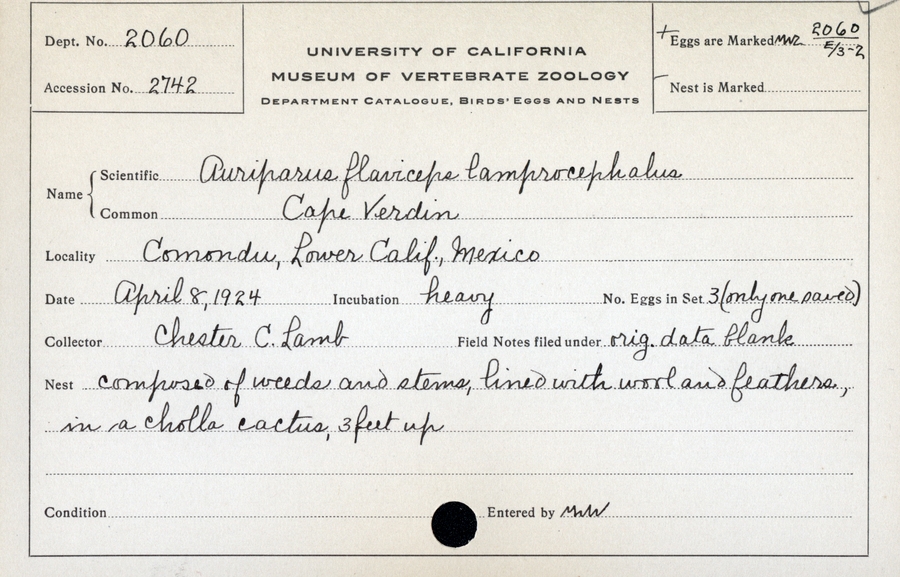 Dept. No. 2060
Accession No. 2742
UNIVERSITY OF CALIFORNIA
MUSEUM OF VERTEBRATE ZOOLOGY
DEPARTMENT CATALOGUE, BIRDS' EGGS AND NESTS
+ Eggs are Marked 2060
E/3-2
Nest is Marked
Name
Scientific Auriparus flaviceps lamprocephalus
Common Cape Verdin
Locality Comondu, Lower Calif., Mexico
Date April 8, 1924 Incubation heavy No. Eggs in Set 3 (only one saved)
Collector Chester C. Lamb Field Notes filed under orig. data blank
Nest composed of weeds and stems, lined with wool and feathers,
in a cholla cactus, 3 feet up
Condition Entered by